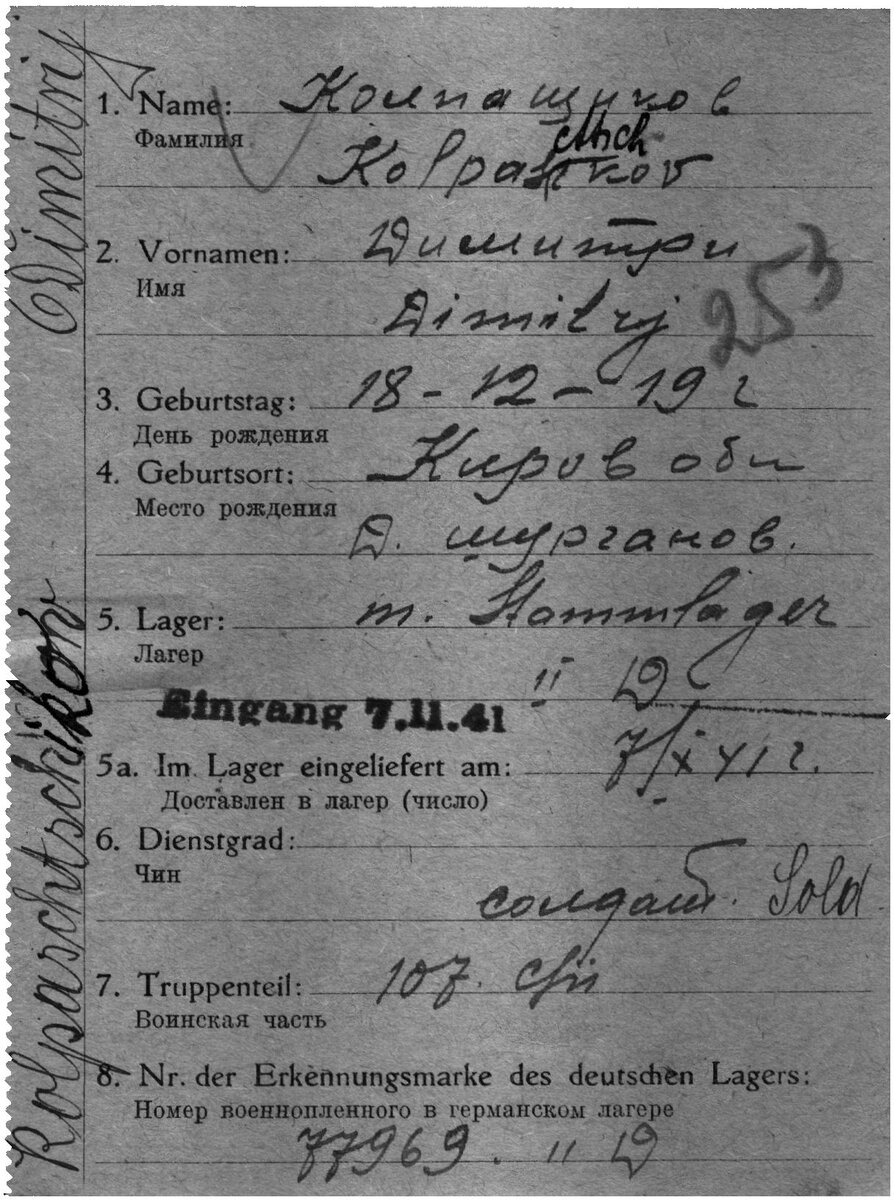 Dimitrij
Kolpaschtschikow
1. Name: Колпащиков
Фамилия
Kolpa kov
chtsch
2. Vornamen: Димитри
Имя
Dimitrij
253
3. Geburtstag: 18-12-19 г
День рождения
4. Geburtsort: Киров обл
Место рождения
Д. шурганов.
5. Lager: m. Stammlager
Лагер
II D
Eingang 7.11.41
5a. Im Lager eingeliefert am: 7/X 41 г.
Доставлен в лагер (число)
6. Dienstgrad:
Чин
солдат. Sold
7. Truppenteil: 107.
Воинская часть
8. Nr. der Erkennungsmarke des deutschen Lagers:
Номер военнопленного в германском лагере
77969. II D